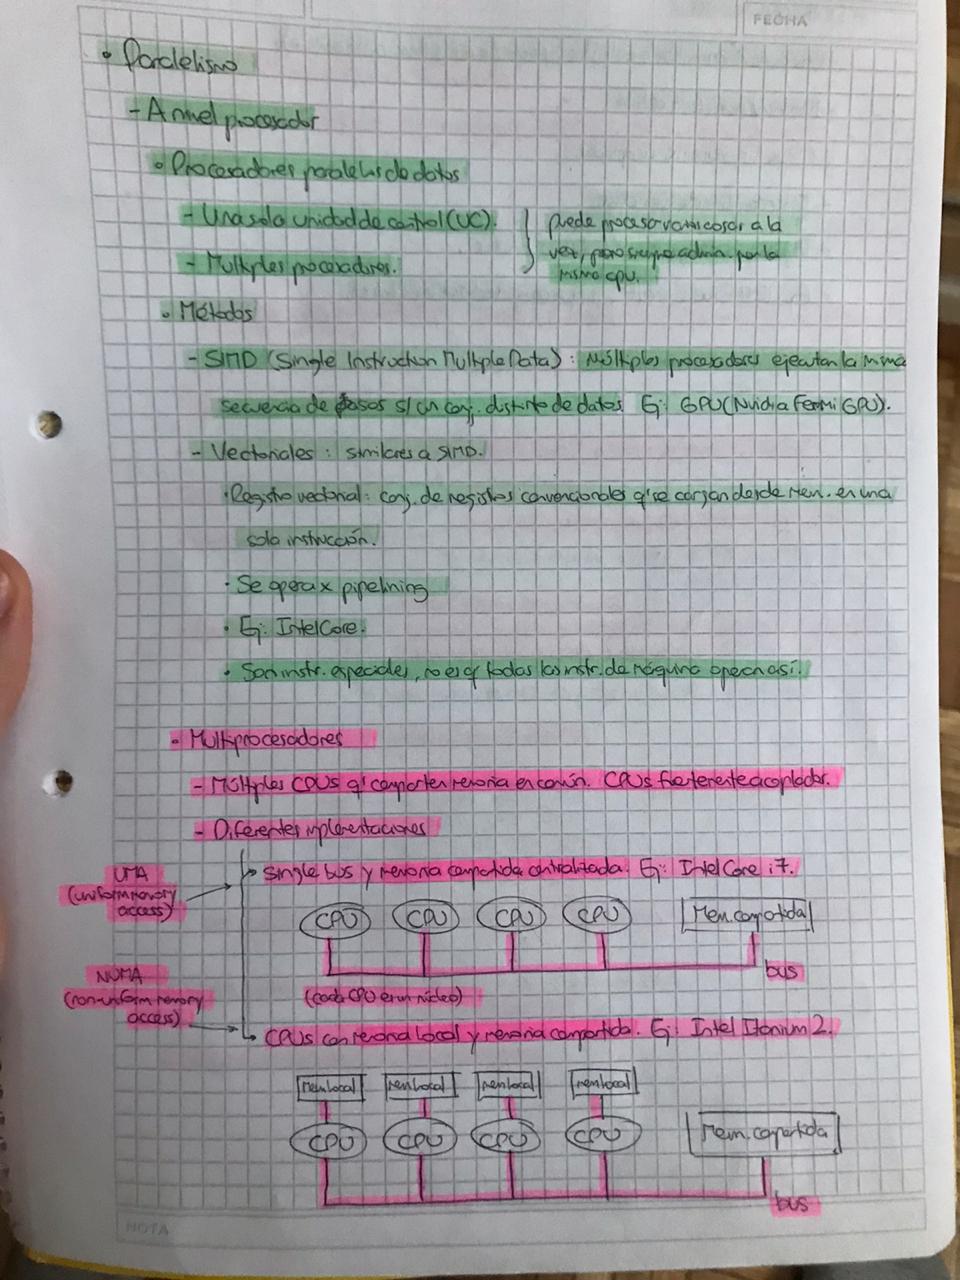 FECHA
• Paralelismo
- A nivel procesador
• Procesadores paralelos de datos
- Una sola unidad de control (UC).
- Múltiples procesadores.
puede procesar varias cosas a la
vez, pero siempre admin. por la
misma cpu.
• Métodos
- SIMD (Single Instruction Multiple Data) : Múltiples procesadores ejecutan la misma
secuencia de pasos s/ un conj. distinto de datos Ej: GPU (Nvidia Fermi GPU).
- Vectoriales : similares a SIMD.
· Registro vectorial : conj. de registros convencionales q' se cargan desde Mem. en una
sola instrucción.
· Se opera x pipelining
· Ej: Intel Core.
· Son instr. especiales, no es q' todas las instr. de máquina operan así.
• Multiprocesadores
- Múltiples CPUs q' comparten memoria en común. CPUs fuertemente acopladas.
- Diferentes implementaciones
UMA
(uniform memory
access)
Single bus y memoria compartida centralizada. Ej: Intel Core i7.
CPU CPU CPU CPU Mem. compartida
bus
(cada CPU es un núcleo)
NUMA
(non-uniform memory
access)
CPUs con memoria local y memoria compartida. Ej: Intel Itanium 2.
Mem local mem local mem local mem local
CPU CPU CPU CPU Mem. compartida
bus
NOTA